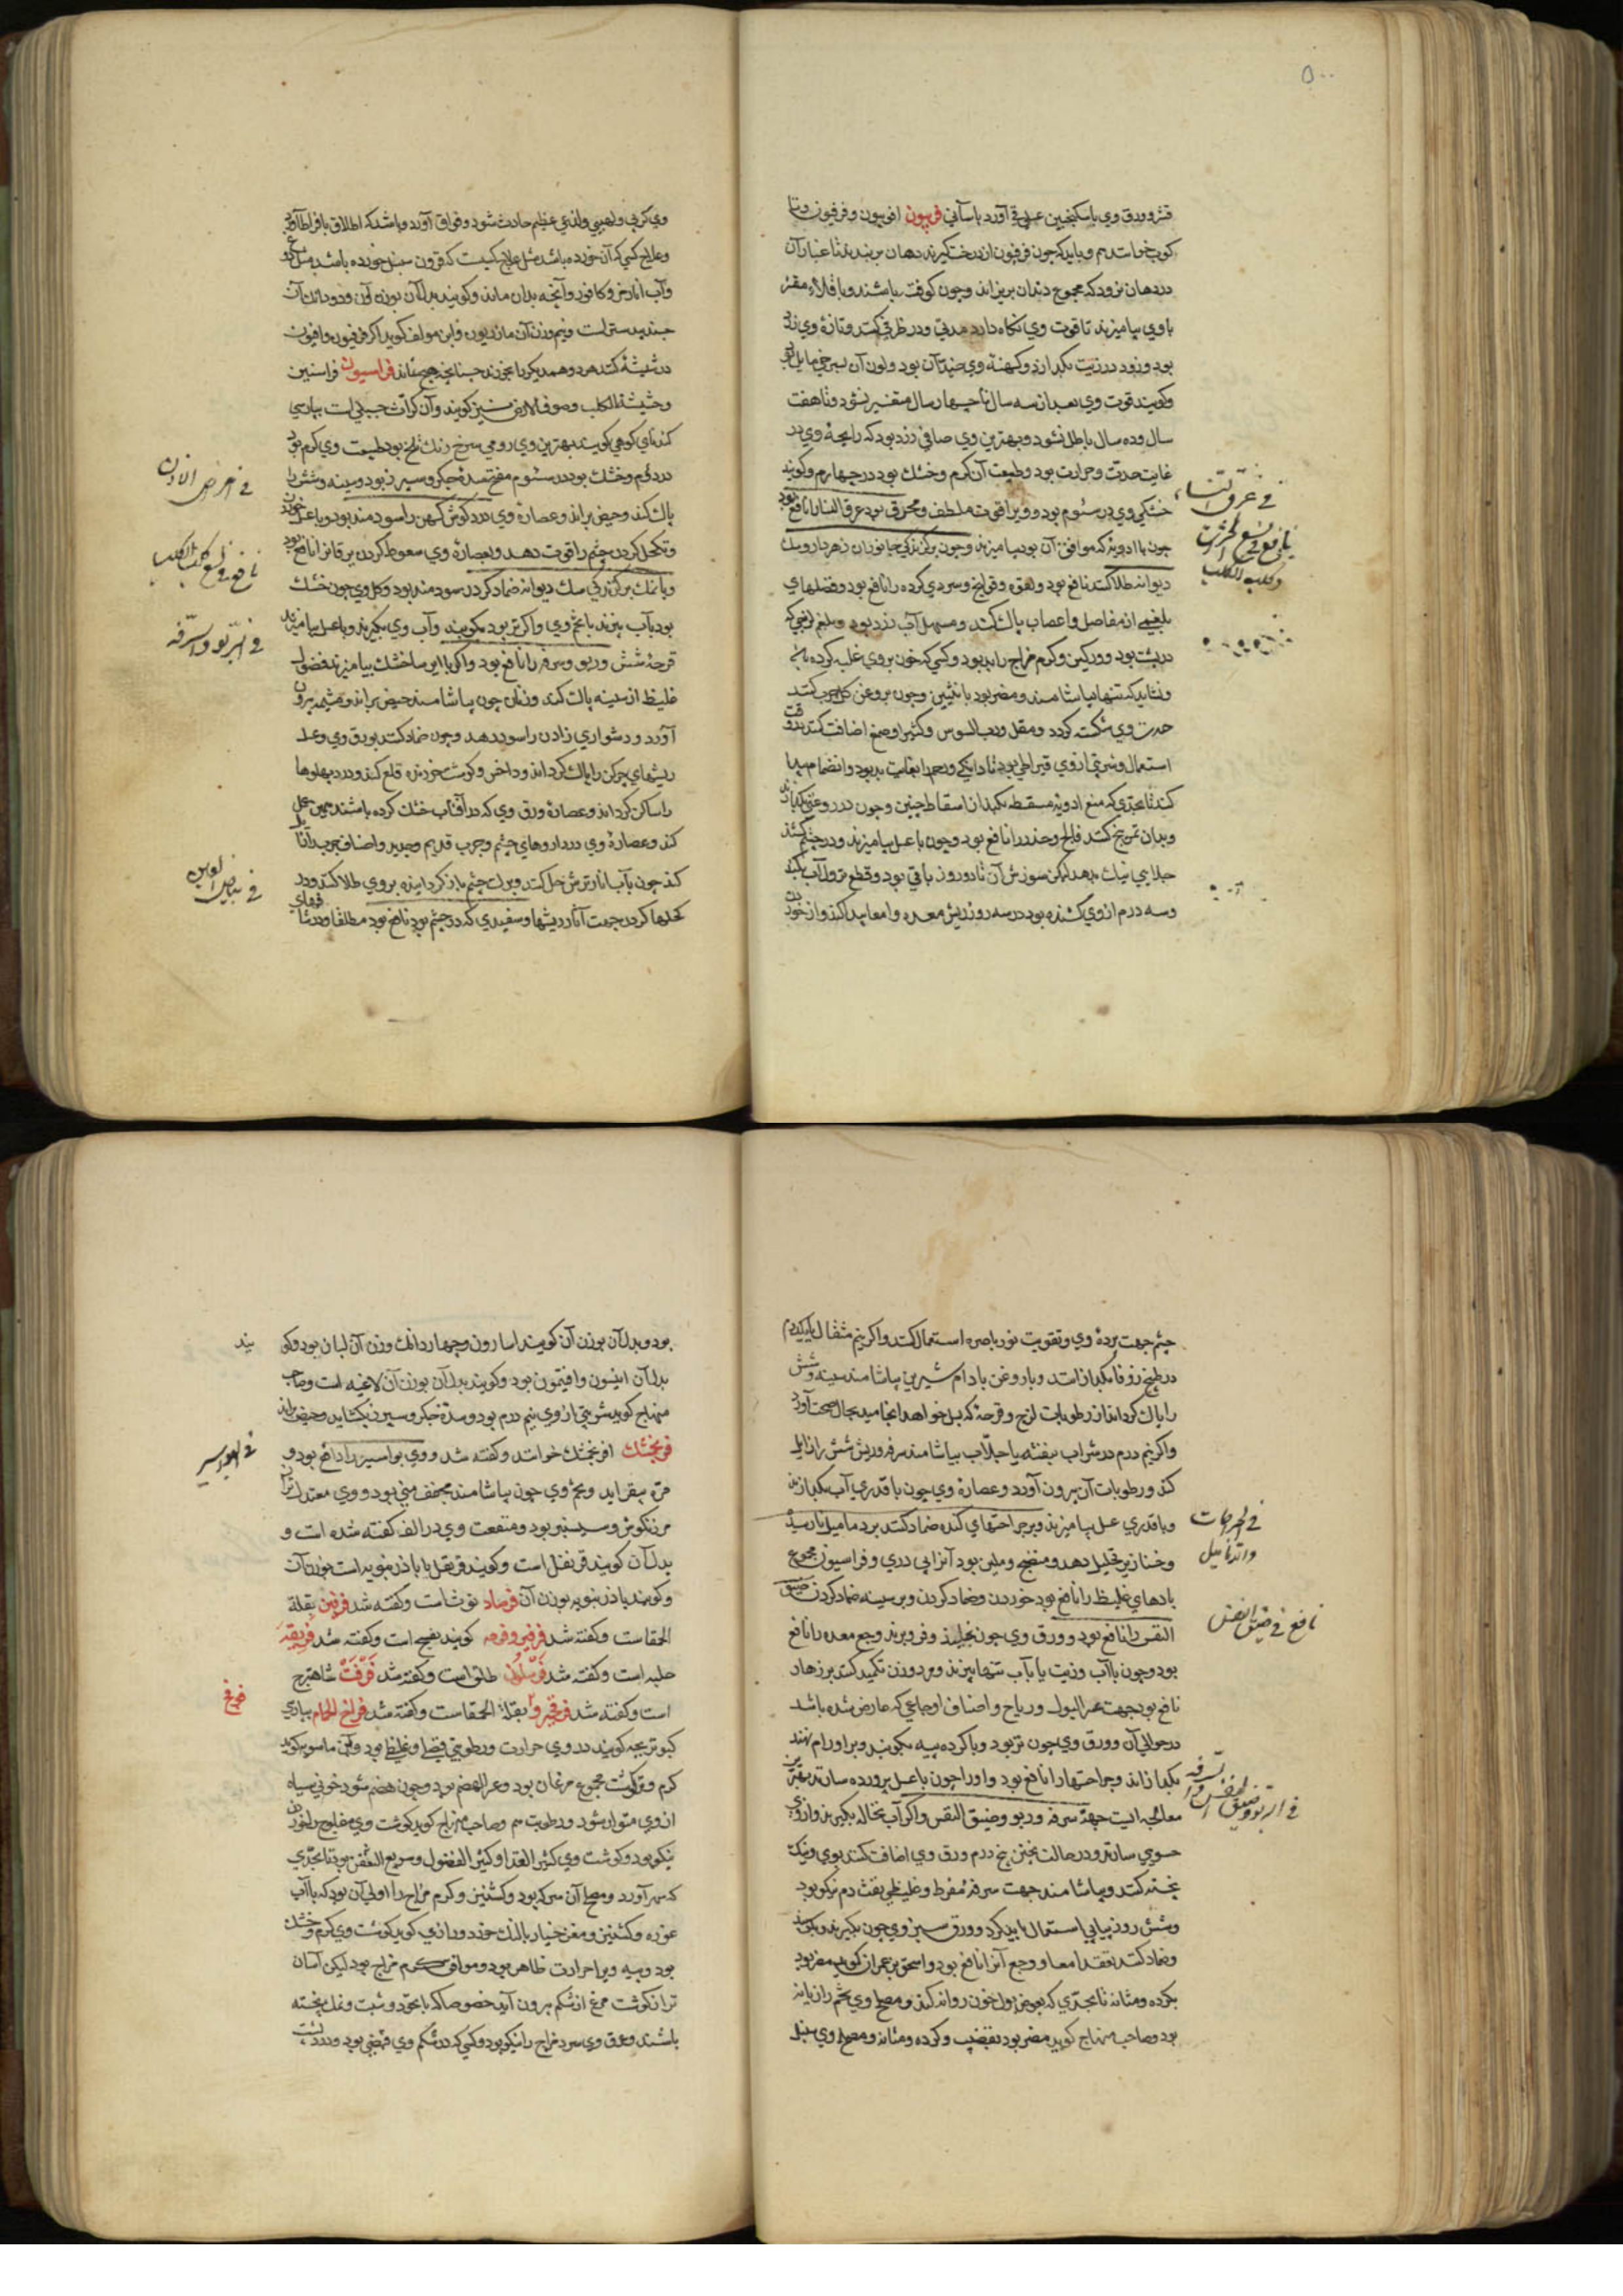 ۵۰۰
قشر و ورق وي با سكنجبين عسلي قي آورد باساني فربيون افربيون وفرفيون وتا
كوب خوانندهم وبايد كه چون فرفيون از درخت كيرند دهان بربندند تا غبار آن
در دهان نرود كه مجموع دندان بريزاند وچون كوفته باشند وباقلاء مقشر
با وي بياميزند تا قوت وي نكاه دارد مدتي ودر ظرفي كنند وتازه وي زرد
بود وزود در زيت بكدازد وكهنه وي ضد آن بود ولون آن بسرخي مايل بود
وكويند قوت وي بعد از سه سال تا چهار سال متغير نشود وتا هفت
سال وده سال باطل نشود وبهترين وي صافي زرد بود كه رايحه وي در
غايت حدت وحرارت بود وطبيعت آن كرم وخشك بود در چهارم وكويند
خشكي وي در سئوم بود وويرا قوت ملطف ومحرق بود عرق النسا را نافع بود
چون با ادويه كه موافق آن بود بياميزند وچون بر كزندكي جانوران زهردار وسك
ديوانه طلا كنند نافع بود ولقوه وقولنج وسردي كرده را نافع بود وفضلهاي
بلغمي از مفاصل واعصاب پاك كند ومسهل آب زرد بود وبلغم لزجي كه
در پشت بود ووركين وكرم مزاج را بد بود وكسي كه خون بروي غلبه كرده باشد
ونشايد كه تنها بياشامند ومضر بود بانثيين وچون بروغن كل چرب كنند
حدت وي شكسته كردد ومقل ورب السوس وكثيرا وصمغ اضافت كنند بدو وقت
استعمال وشربتي از وي قيراطي بود تا دانكي ورحم را بغايت بد بود وانضمام پيدا
كند تا بحدي كه منع ادويه مسقطه بكند از اسقاط جنين وچون در روغني بكدازند
وبدان تمريخ كنند فالج وخدر را نافع بود وچون با عسل بياميزند ودر چشم كشند
جلايي نيك بدهد ليكن سوزش آن تا دو روز باقي بود وقطع نزول آب بكند
وسه درم از وي كشنده بود در سه روز ريش معده وامعا پيدا كند واز خوردن
في عرق النساء
نافع في لسع الحشرات
وكلب الكلب
وي كربي ولهيبي ولذعي عظيم حادث شود وفواق آورد وباشد كه اطلاق بافراط آورد
وعلاج كسي كه آن خورده باشد مثل علاج كسيست كه قرون سنبل خورده باشد مثل دوغ
وآب انار مز وكافور وآنچه بدان ماند وكويند بدل آن بوزن آن ودو دانك آن
جندبيدسترست ونيم وزن آن مازريون وابن مولف كويد اكر فرفيون وافيون
در شيشه كنند هر دو همديكر را بخورند چنانچه هيچ نماند فراسيون فراسنين
وحشيشة الكلب وصوف الارض نيز كويند وآن كراث جبليست پپارسي
كندناي كوهي كويند بهترين وي رومي سرخ رنك تلخ بود طبيعت وي كرم بود
در دوم وخشك بود در سئوم مفتح سده جكر وسپرز بود وسينه وشش را
پاك كند وحيض براند وعصاره وي درد كوش كهن را سودمند بود وبا عسل خوردن
وتكحل كردن چشم را قوت دهد وبعصاره وي سعوط كردن يرقان را نافع بود
وبا نمك بر كزندكي سك ديوانه ضماد كردن سودمند بود وكل وي چون خشك
بود بآب بپزند با تخم وي واكر تر بود بكوبند وآب وي بكيرند وبا عسل بياميزند
قرحه شش وربو وسرفه را نافع بود واكر با ايرسا خشك بياميزند فضول
غليظ از سينه پاك كند وزنان چون بياشامند حيض براند ومشيمه بيرون
آورد ودشواري زادن را سود دهد وچون ضماد كنند بورق وي وعسل
ريشهاي چركن را پاك كرداند وداخس وكوشت خورنده قلع كند ودرد پهلوها
را ساكن كرداند وعصاره ورق وي كه در آفتاب خشك كرده باشند همين عمل
كند وعصاره وي در داروهاي چشم وجرب قديم وجديد واصناف جرب را زايل
كند چون بآب انار ترش حل كنند وبرلك چشم باز كردانيده بروي طلا كنند ودر
كحلها كردن جهت آثار ريشها وسفيدي كه در چشم بود نافع بود مطلقا ودر شافهاي
في امراض الاذن
نافع في لسع كلب الكلب
في الربو والسرفه
چشم جهت برده وي وتقويت نور باصره استعمال كنند واكر نيم مثقال يا يكدرم
در طبيخ زوفا بكدازانند وبا روغن بادام شيرين بياشامند سينه وشش
را پاك كرداند از رطوبات لزج وقرحه كه بسل خواهد انجاميد بحال صحت آورد
واكر نيم درم در شراب بنفشه يا جلاب بياشامند سرفه وريش شش را زايل
كند ورطوبات آن بيرون آورد وعصاره وي چون با قدري آب بكدازند
وبا قدري عسل بياميزند وبر جراحتهاي كنده ضماد كنند بر دماميل نارسيده
وخنازير تحليل دهد ومنضج وملين بود آنرا بي دردي وفراسيون مجموع
بادهاي غليظ را نافع بود خوردن وضماد كردن وبر سينه ضماد كردن ضيق
النفس را نافع بود وورق وي چون بخايند وفرو برند وجع معده را نافع
بود وچون باآب وزيت يا بآب تنها بپزند ومرد وزن تكميد كنند بر زهار
نافع بود جهت عسر البول ورياح واصناف اوجاعي كه عارض شده باشد
در حوالي آن وورق وي چون تر بود وبا كرده پيه بكوبند وبر اورام نهند
بكدازاند وجراحتها را نافع بود واورا چون با عسل پرورده سازند بهترين
معالجه ايست جهة سرفه وربو وضيق النفس واكر آب نخاله بكيرند واز وي
حسوي سازند ودر حالت پختن پنج درم ورق وي اضافت كنند بوي ونيك
پخته كنند وبياشامند جهت سرفه مفرط وغليظ بي نفث دم نيكو بود
وشش روز پياپي استعمال بايد كرد وورق سبز وي چون بكيرند وبكوبند
وضماد كنند بعقد امعا ووجع آنرا نافع بود واسحق بن عمران كويد مضر بود
بكرده ومثانه تا بحدي كه بعوض بول خون روانه كند ومصلح وي تخم رازيانه
بود وصاحب منهاج كويد مضر بود بقضيب وكرده ومثانه ومصلح وي سنبل
في الجراحات
والدماميل
نافع في ضيق النفس
بود وبدل آن بوزن آن كويند اسارون وچهار دانك وزن آن لبان بود وكويند
بدل آن انيسون وافتيمون بود وكويند بدل آن بوزن آن لاغيه است وصاحب
منهاج كويد شربتي از وي نيم درم بود وسده جكر وسپرز بكشايد وحيض براند
فرنجمشك افرنجمشك خوانند وكفته شد ووي بواسير را نافع بود و
مره بيفزايد وتخم وي چون بياشامند مجفف مني بود ووي معتدلتر از
مرزنكوش وسيسنبر بود ومنفعت وي در الف كفته شده است و
بدل آن كويند قرنفل است وكويند قرنفل با بادرنبويه است بوزن آن
وكويند بادرنبويه بوزن آن فرصاد توث است وكفته شد فرفين بقلة
الحمقاست وكفته شد فرفير وفرفه كويند بنفسج است وكفته شد فريقه
حلبه است وكفته شد طلق است وكفته شد شاهترج
است وكفته شد بقلة الحمقاست وكفته شد فراخ الحمام پپارسي
كبوتر بچه كويند در وي حرارت ورطوبتي فضلي وغليظ بود
كرم وتر كوشت مجموع مرغان بود وعسر الهضم بود وچون هضم شود خوني سياه
از وي متولد شود ورطوبت هم وصاحب منهاج كويد كوشت وي مفلوج را خوردن
نيكو بود وكوشت وي كثير الغذا وكثير الفضول وسريع التعفن بود تا بحدي
كه سهر آورد ومصلح آن سركه بود وكشنيز وكرم مزاج را اولي آن بود كه با آب
غوره وكشنيز ومغز خيار بالنك خورد ورازي كويد كوشت وي كرم وخشك
بود وپيه ويرا حرارت ظاهر بود وموافق كرم مزاج بود ليكن آسان
تر از كوشت مرغ از شكم بيرون آيد خصوصا كه با نخود وشبت ونمك پخته
باشند ومرق وي سرد مزاج را نيكو بود وكسي كه در شكم وي قبضي بود ودرد پشت
في البواسير